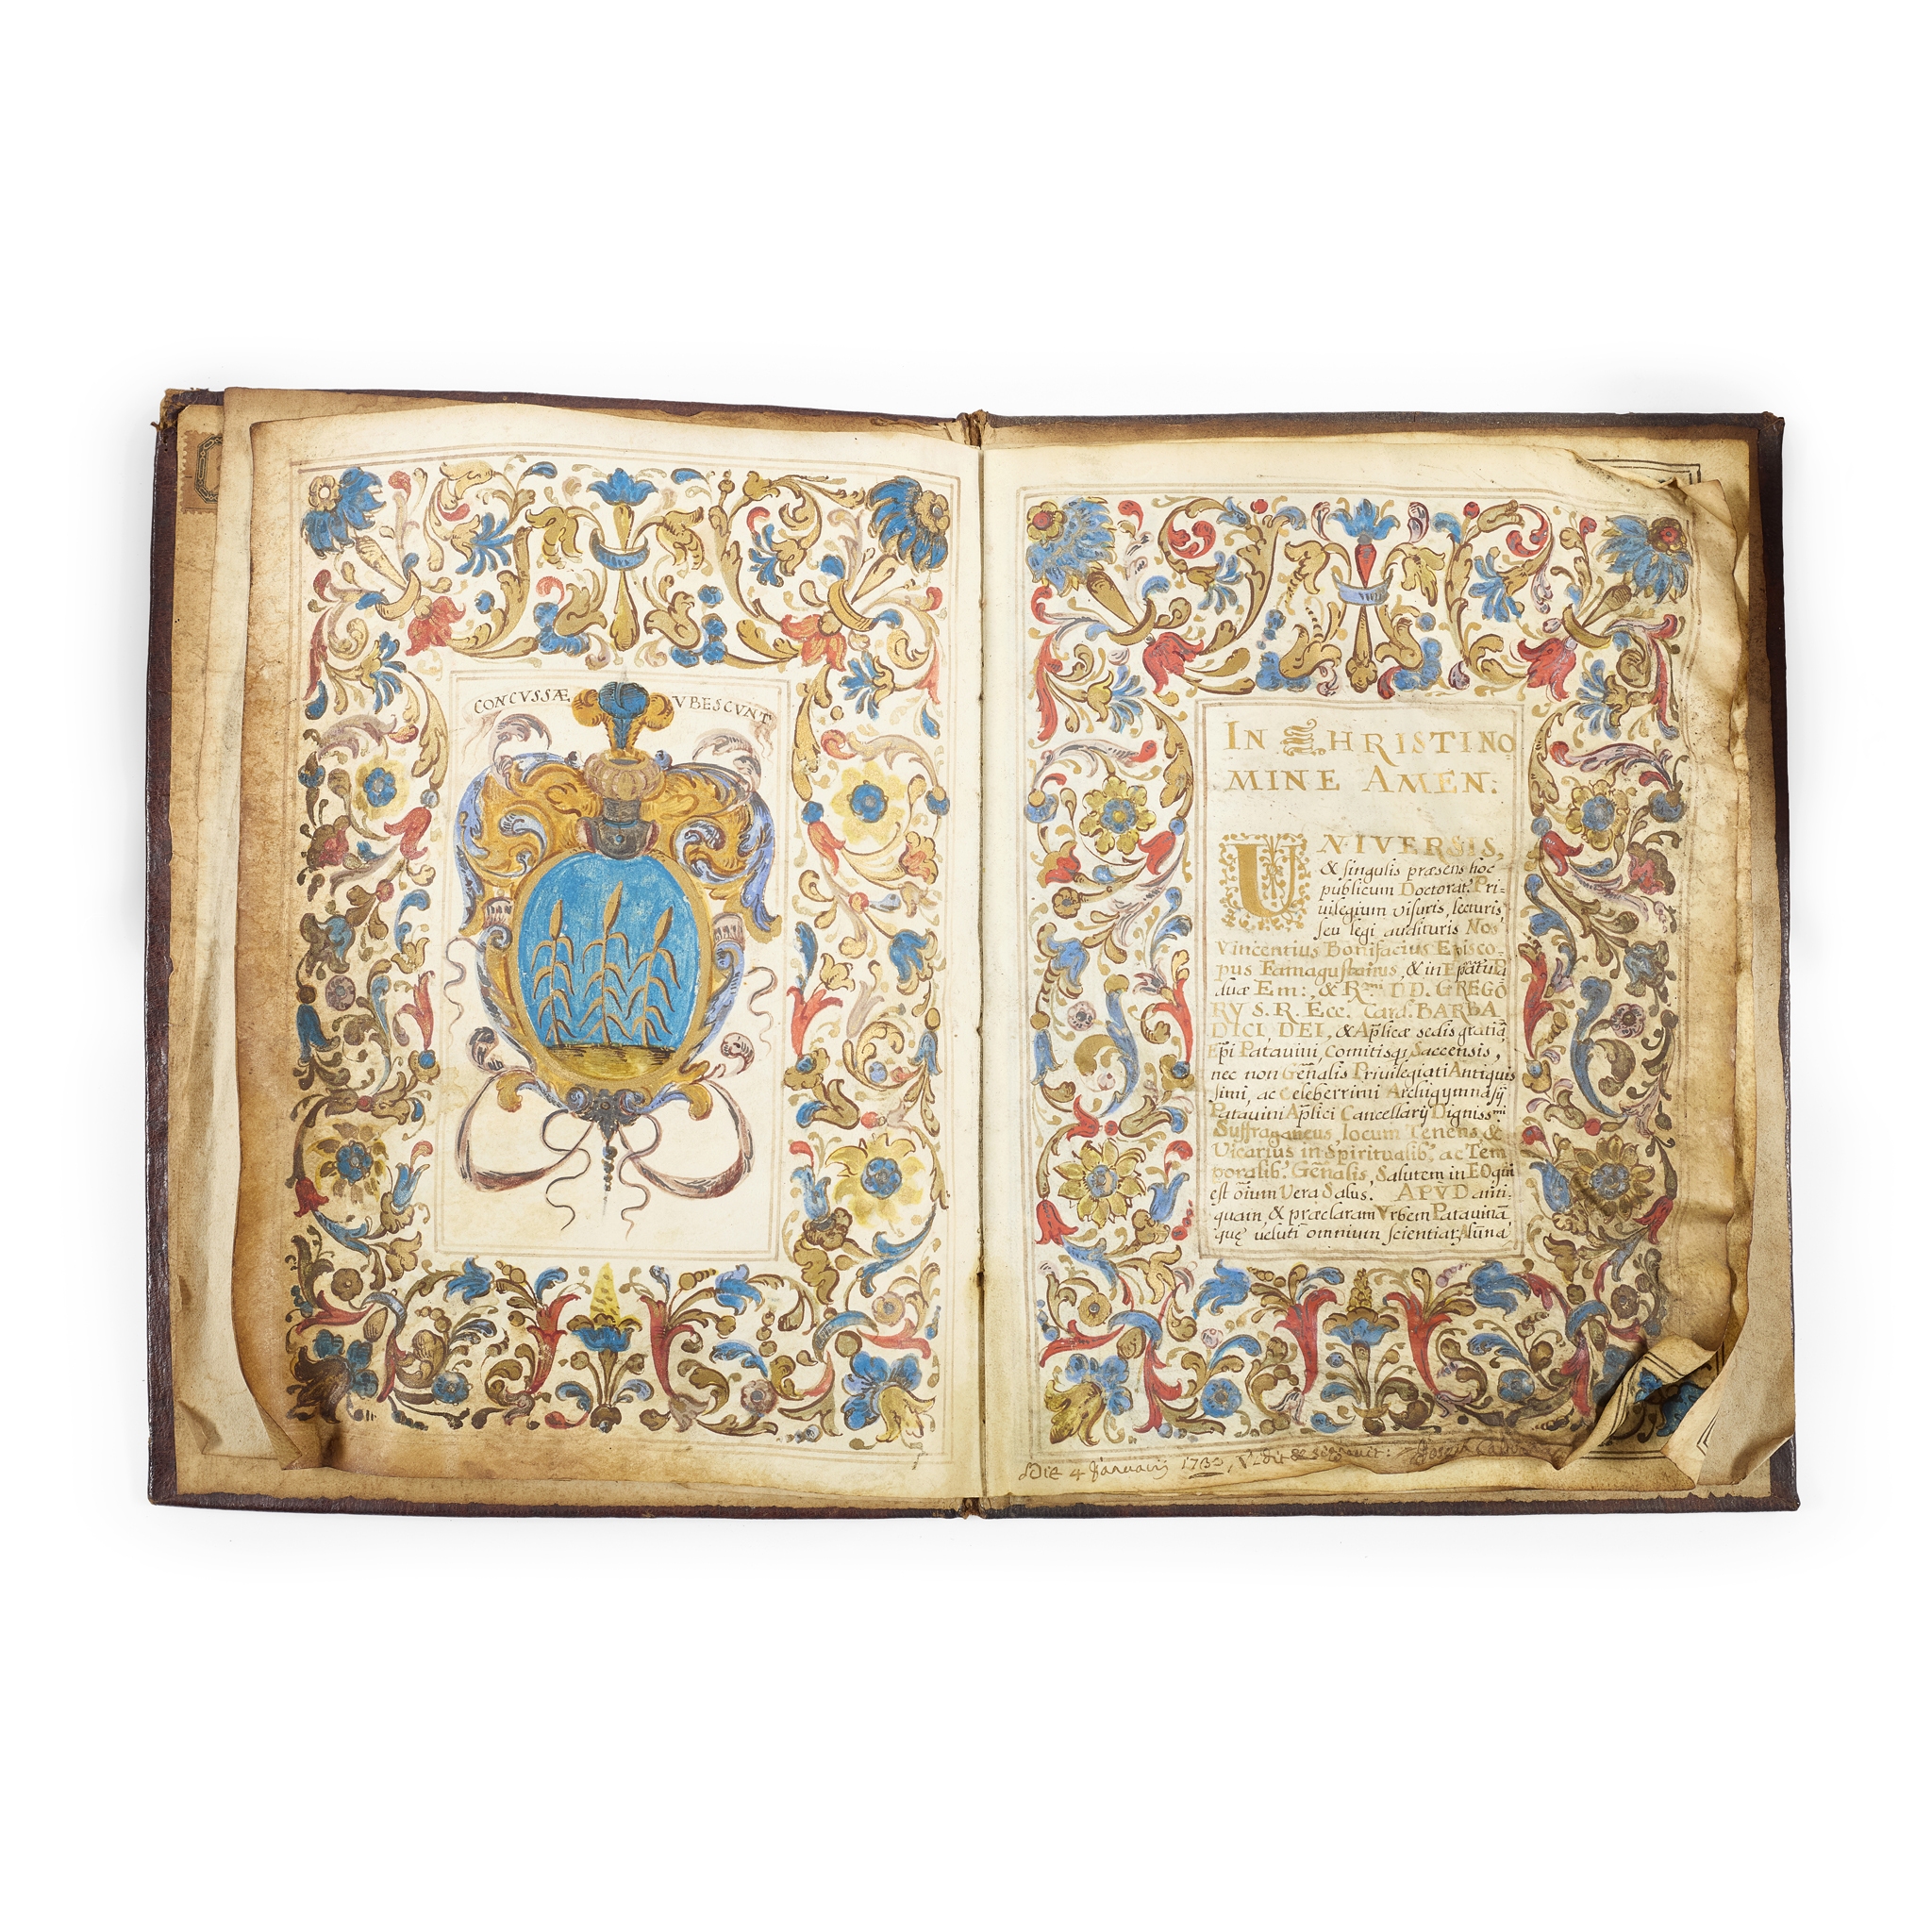 CONCVSSÆ VBESCVNT
IN CHRISTI NO
MINE AMEN.
UNIVERSIS,
& singulis præsens hoc
publicum Doctorat. Pri-
uilegium visuris, lecturis,
seu legi audituris Nos
Vincentius Bonifacius Episco-
pus Famagustanus, & in Epātu Pa
duæ Em: & R.mi D D. GREGO
RY S. R. Ecc. Card. BARBA
DICI, DEI, & Aplicæ sedis gratiā
Epi Patauini, Comitisq Saccensis,
nec non Gēnalis Priuilegiati Antiquis
simi, ac Celeberrimi Archigymnasij
Patauini Aplici Cancellarij Digniss.mi
Suffraganeus, locum Tenens &
Vicarius in Spiritualib. ac Tem
poralib. Gēnalis, Salutem in EO qui
est oīum Vera Salus. APVD anti-
quam & præclaram Vrbem Patauinā,
quę ueluti omnium scientiar Aluna
Die 4 Januarij 1730, Vidit &